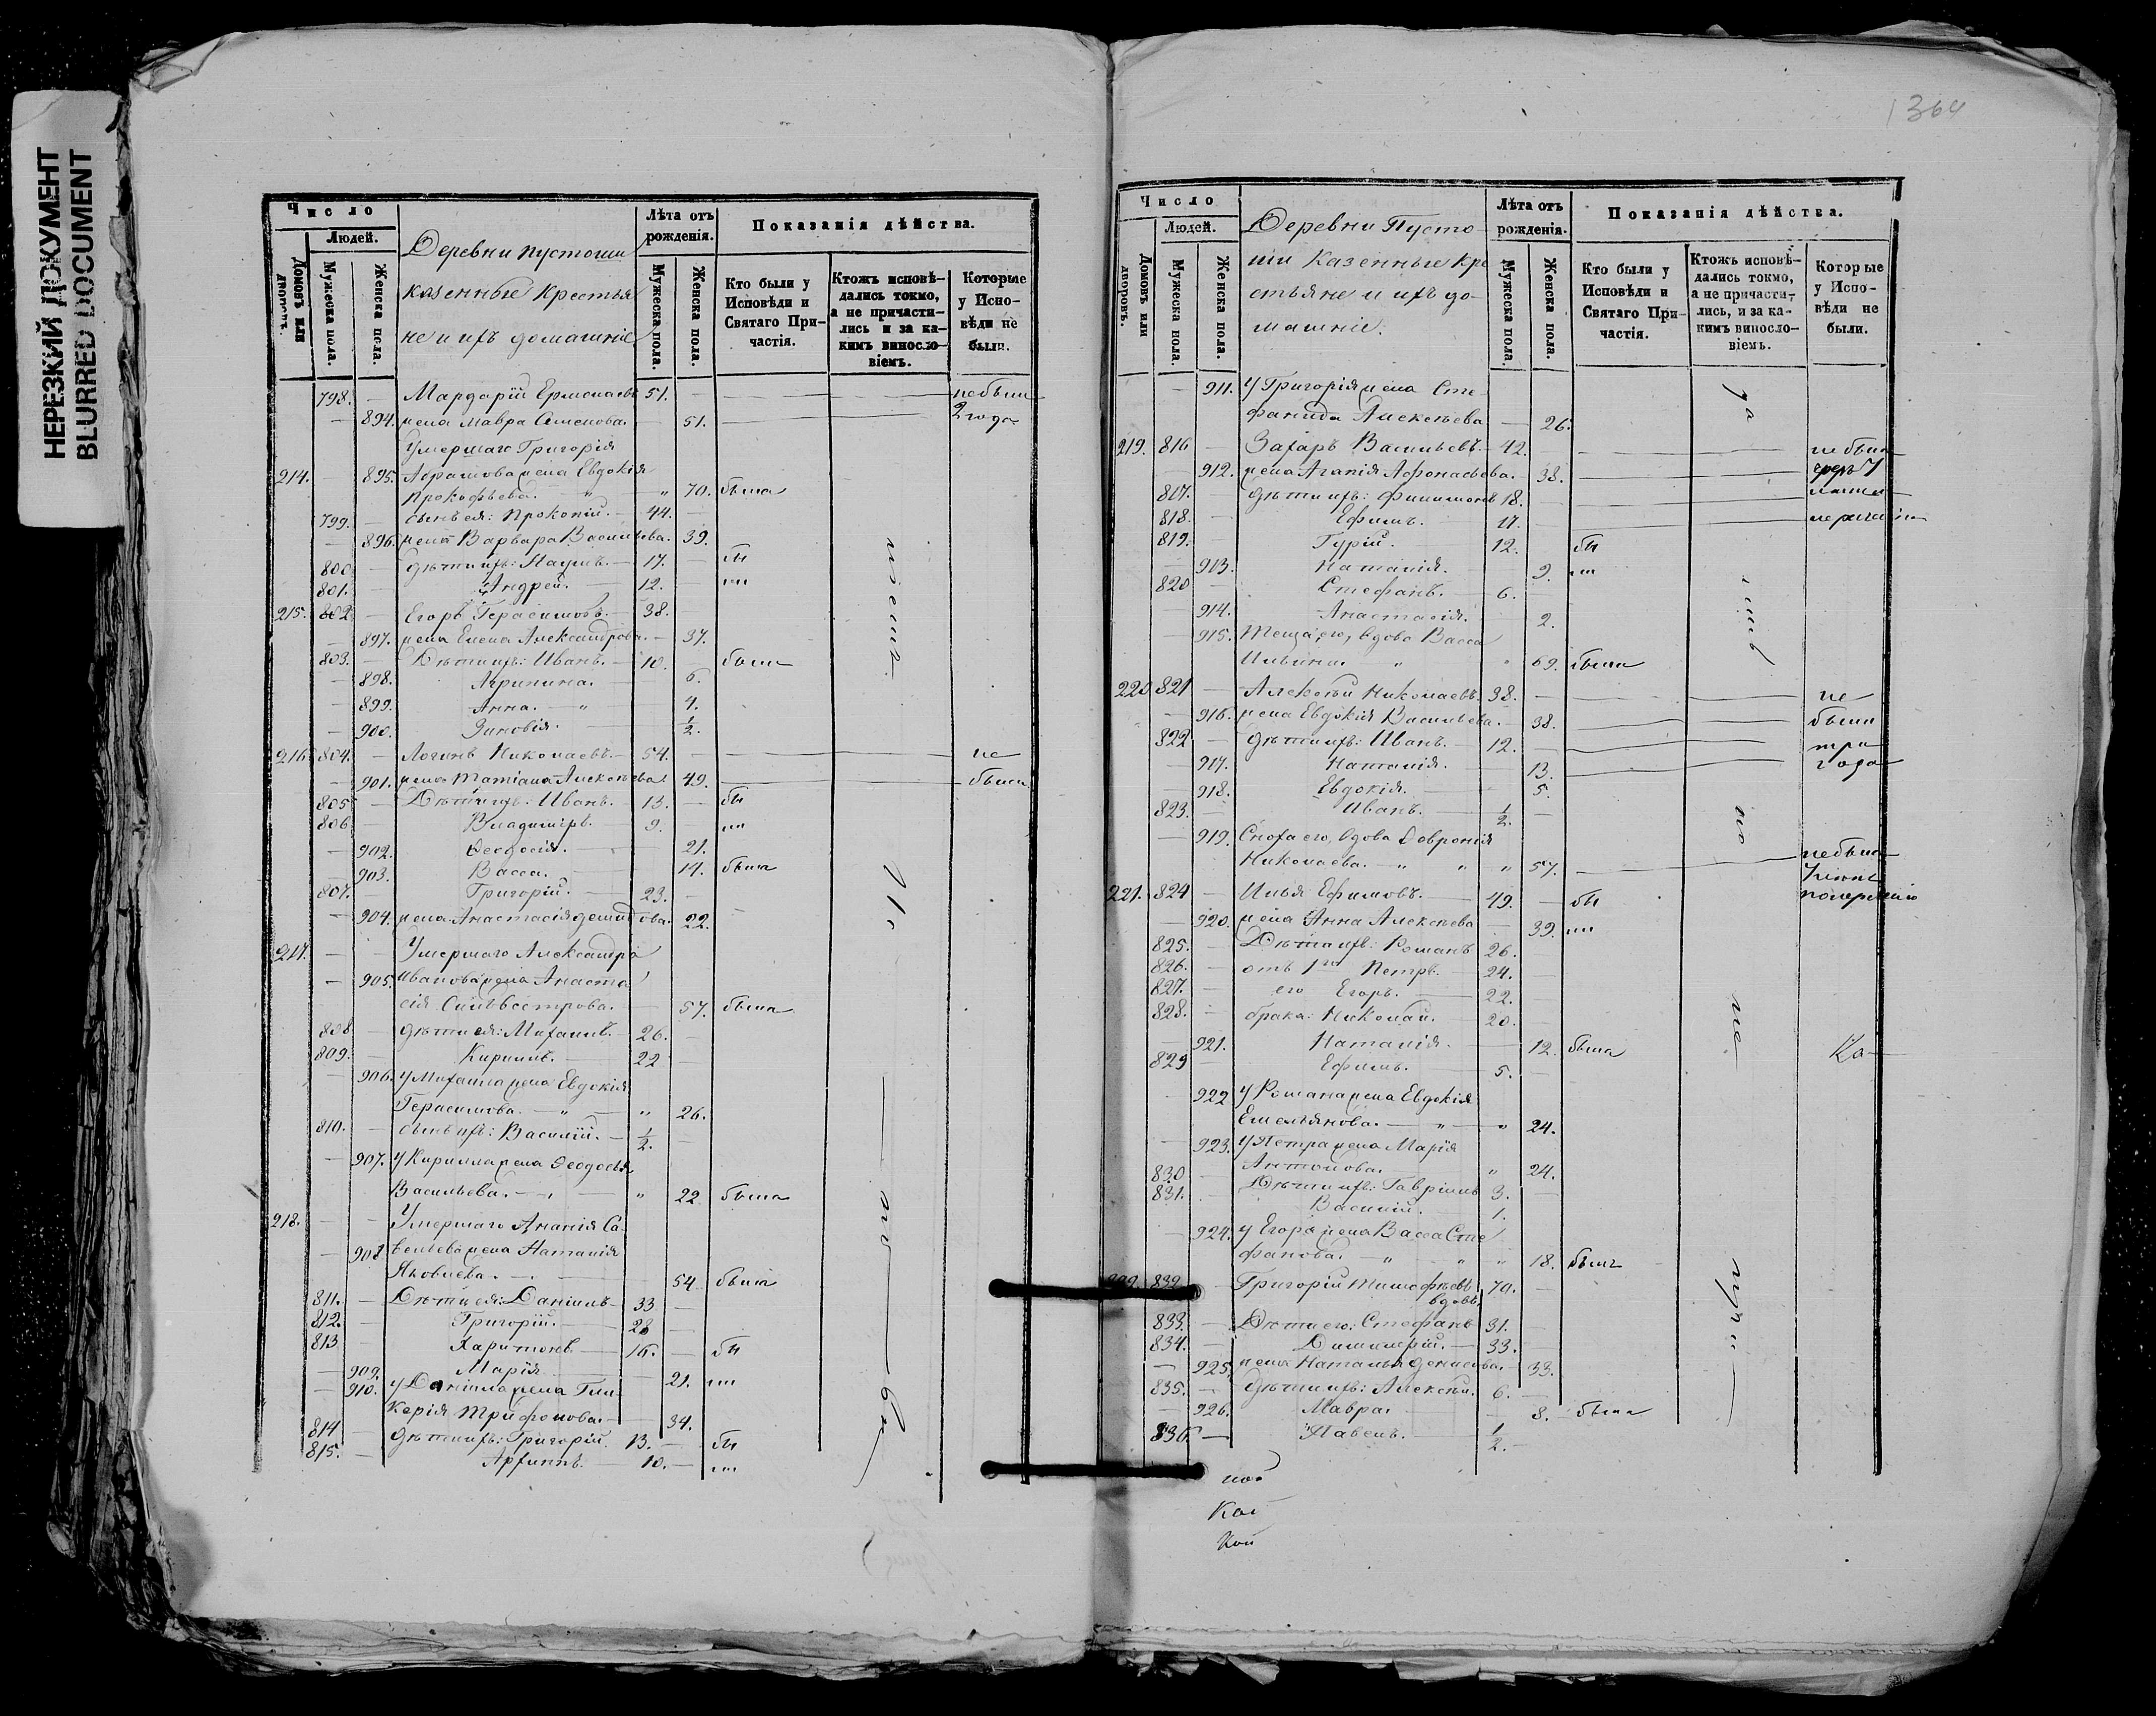 НЕРЕЗКИЙ ДОКУМЕНТ
BLURRED DOCUMENT
Число
Людей.
Домовъ или дворовъ.
Мужеска пола.
Женска пола.
Деревни Пустоши
казенные Крестья
не и ихъ домашніе
Лѣта отъ рожденія.
Мужеска пола.
Женска пола.
Показанія дѣйства.
Кто были у Исповѣди и Святаго При-частія.
Ктожъ исповѣ-дались токмо, а не причасти-лись и за ка-кимъ винослo-віемъ.
Которые у Испо-вѣди не были.
798. Мардарій 51. небыли
894. жена Мавра Семенова. 51. 2 года
Умершаго Григорія
214. 895. жена Евдокія
Прокофьева. 70. была
799. сынъ ея: Прокопій. 44.
896. жена Варвара Васильева. 39.
800. дѣти ихъ: 17. бы
801. Андрей. 12. ли
215. 802. Егоръ Герасимовъ. 38.
897. жена Елена Александрова. 37.
803. Дѣти ихъ: Иванъ. 10. были
898. Агрипина. 6.
899. Анна. 4.
900. Зиновія. 1/2.
216. 804. Логинъ Николаевъ. 54. не
901. жена Татіана Алексѣева. 49. были
805. Дѣти ихъ: Иванъ. 13. бы
806. Владиміръ. 9. ли
902. Ѳеодосія. 21.
903. Васса. 14. была
807. Григорій. 23.
904. жена Анастасія Демидова. 22.
217. Умершаго Александра
905. Иванова жена Анаста
сія Сильвестрова. 57. была
808. дѣти ея: Михаилъ. 26.
809. Кирилъ. 22
906. у Михаила жена Евдокія
Герасимова. 26.
810. сынъ ихъ: Василій. 1/2.
907. у Кирилла жена Ѳеодосія
Васильева. 22 была
218. Умершаго Ананія Са-
908 вельева жена Наталія
Яковлева. 54. была
811. Дѣти ея: Даніилъ 33
812. Григорій. 28
813 Харитонъ 16. бы
909. Марія 21. ли
910. у Даніила жена Гли
керія Трифонова. 34.
814 дѣти ихъ: Григорій. 13. бы
815. Архипъ. 10. ли
364
Число
Людей.
Домовъ или дворовъ.
Мужеска пола.
Женска пола.
Деревни Пусто-
ши Казенные Кре
стьяне и ихъ до-
машніе.
Лѣта отъ рожденія.
Мужеска пола.
Женска пола.
Показанія дѣйства.
Кто были у Исповѣди и Святаго При-частія.
Ктожъ исповѣ-дались токмо, а не причасти-лись, и за ка-кимъ винослo-віемъ.
Которые у Испо-вѣди не были.
911. У Григорія жена Сте-
фанида Алексѣева 26.
219. 816 Захаръ Васильевъ. 42. не были
912. жена Агапія Афонасьева. 38.
817. дѣти ихъ: Филимонъ 18.
818. Ефимъ. 17.
819. Гурій. 12. бы
913. Наталія. 9. ли
820 Стефанъ. 6.
914. Анастасія. 2.
915. Теща его, вдова Васса
Ильина 69. была
220 821 Алексѣй Николаевъ. 38. не
916. жена Евдокія Васильева. 38. были
822 дѣти ихъ: Иванъ. 12. три
917. Наталія. 13. года
918. Евдокія. 5.
823. Иванъ. 1/2.
919. Сноха его, вдова Ѳевронія
Николаева. 57. небыла
221. 824 Илья Ефимовъ. 49. бы
920. жена Анна Алексѣева 39. ли
825. Дѣти ихъ: Романъ 26.
826. отъ 1го Петръ. 24.
827. его Егоръ. 22.
828. брака: Николай. 20.
921. Наталія. 12. была
829 Ефимъ. 5.
922 у Романа жена Евдокія
Емельянова. 24.
923. у Петра жена Марія
Антонова. 24.
830 Дѣти ихъ: Гавріилъ 3.
831. Василій. 1.
924. у Егора жена Васса Сте
фанова. 18. была
222. 832. Григорій Тимофѣевъ. 70.
вдовъ.
833. Дѣти его: Стефанъ 31.
834. Димитрій. 33.
925. жена Наталья Денисова. 33.
835. дѣти ихъ: Алексѣй. 6.
926. Мавра. 8. была
836. Павелъ. 1/2.